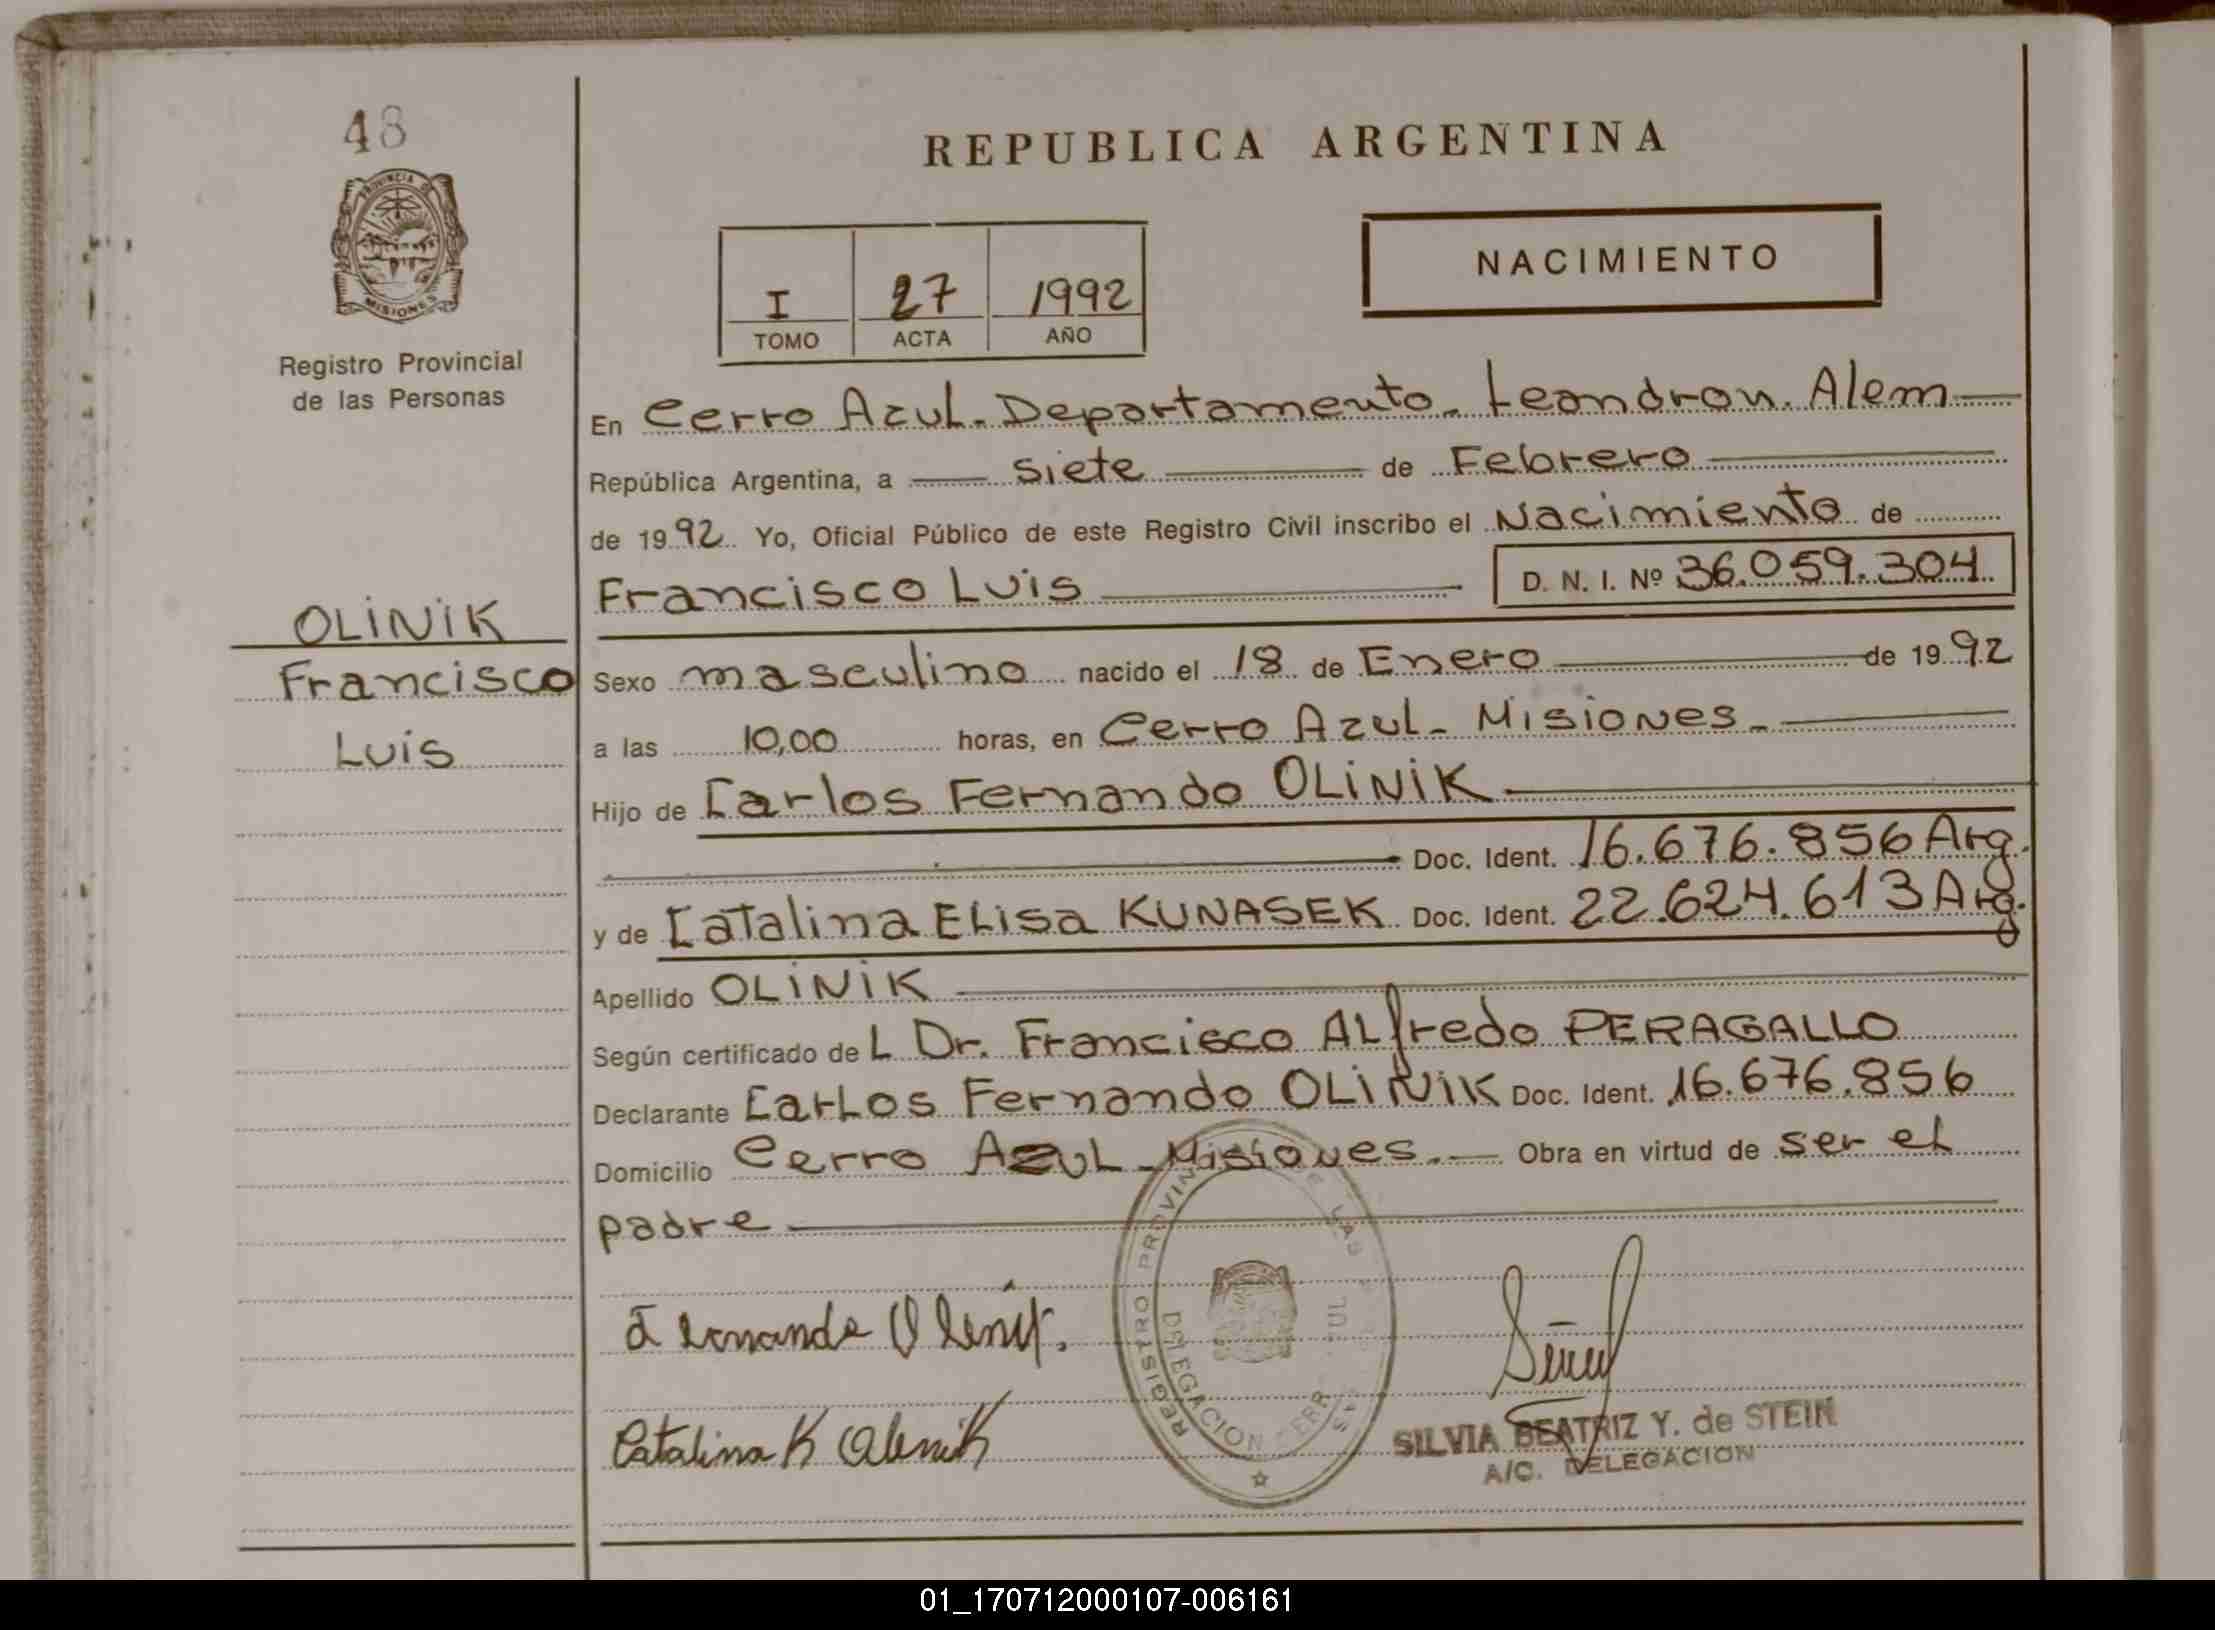 48
PROVINCIA DE
MISIONES
Registro Provincial
de las Personas
OLINIK
Francisco
Luis
REPUBLICA ARGENTINA
I 27 1992
TOMO ACTA AÑO
NACIMIENTO
En Cerro Azul - Departamento - Leandro N. Alem
República Argentina, a siete de Febrero
de 1992 Yo, Oficial Público de este Registro Civil inscribo el Nacimiento de
Francisco Luis D. N. I. Nº 36.059.304
Sexo masculino nacido el 18 de Enero de 1992
a las 10,00 horas, en Cerro Azul - Misiones -
Hijo de Carlos Fernando OLINIK
Doc. Ident. 16.676.856 Arg.
y de Catalina Elisa KUNASEK Doc. Ident. 22.624.613 Arg.
Apellido OLINIK
Según certificado de L Dr. Francisco Alfredo PERAGALLO
Declarante Carlos Fernando OLINIK Doc. Ident. 16.676.856
Domicilio Cerro Azul - Misiones. - Obra en virtud de ser el
padre
Fernando Olinik.
Catalina K Olinik
REGISTRO PROVIN DE LAS
DELEGACION CERR ZUL
SILVIA BEATRIZ Y. de STEIN
A/C. DELEGACION
01_170712000107-006161